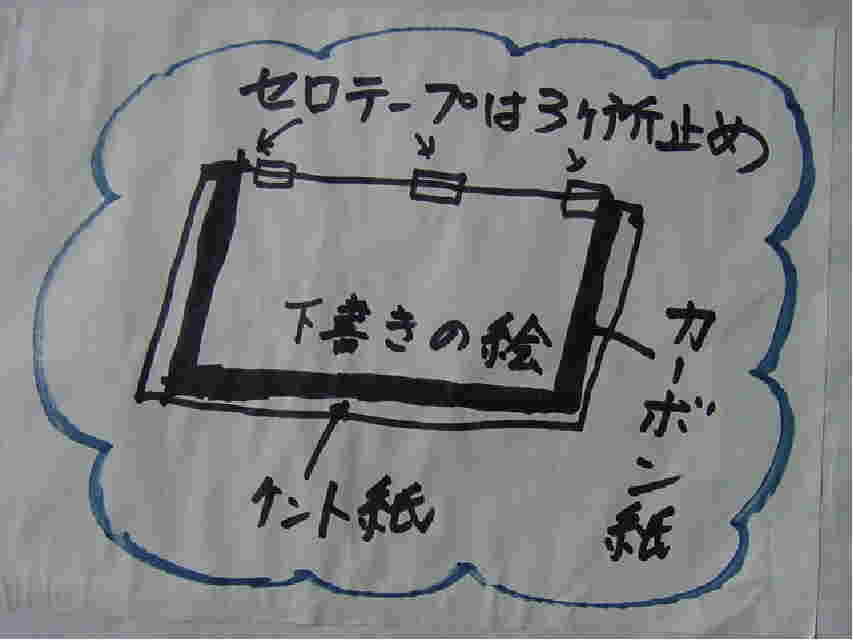 セロテープは3ヶ所止め
下書きの絵
カーボン紙
ケント紙